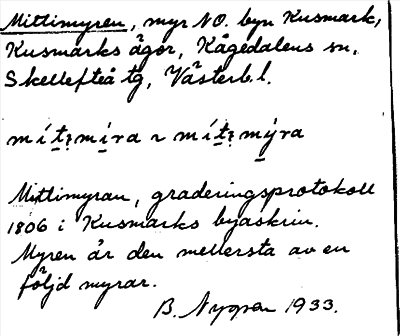 Mittimyren, myr NO. byn Kusmark,
Kusmarks ägor, Kågedalens sn,
Skellefteå tg, Västerb. l.
Mittimyran, graderingsprotokoll
1806 i Kusmarks byaskrin.
Myren är den mellersta av en
följd myrar.
B. Nygren 1933.